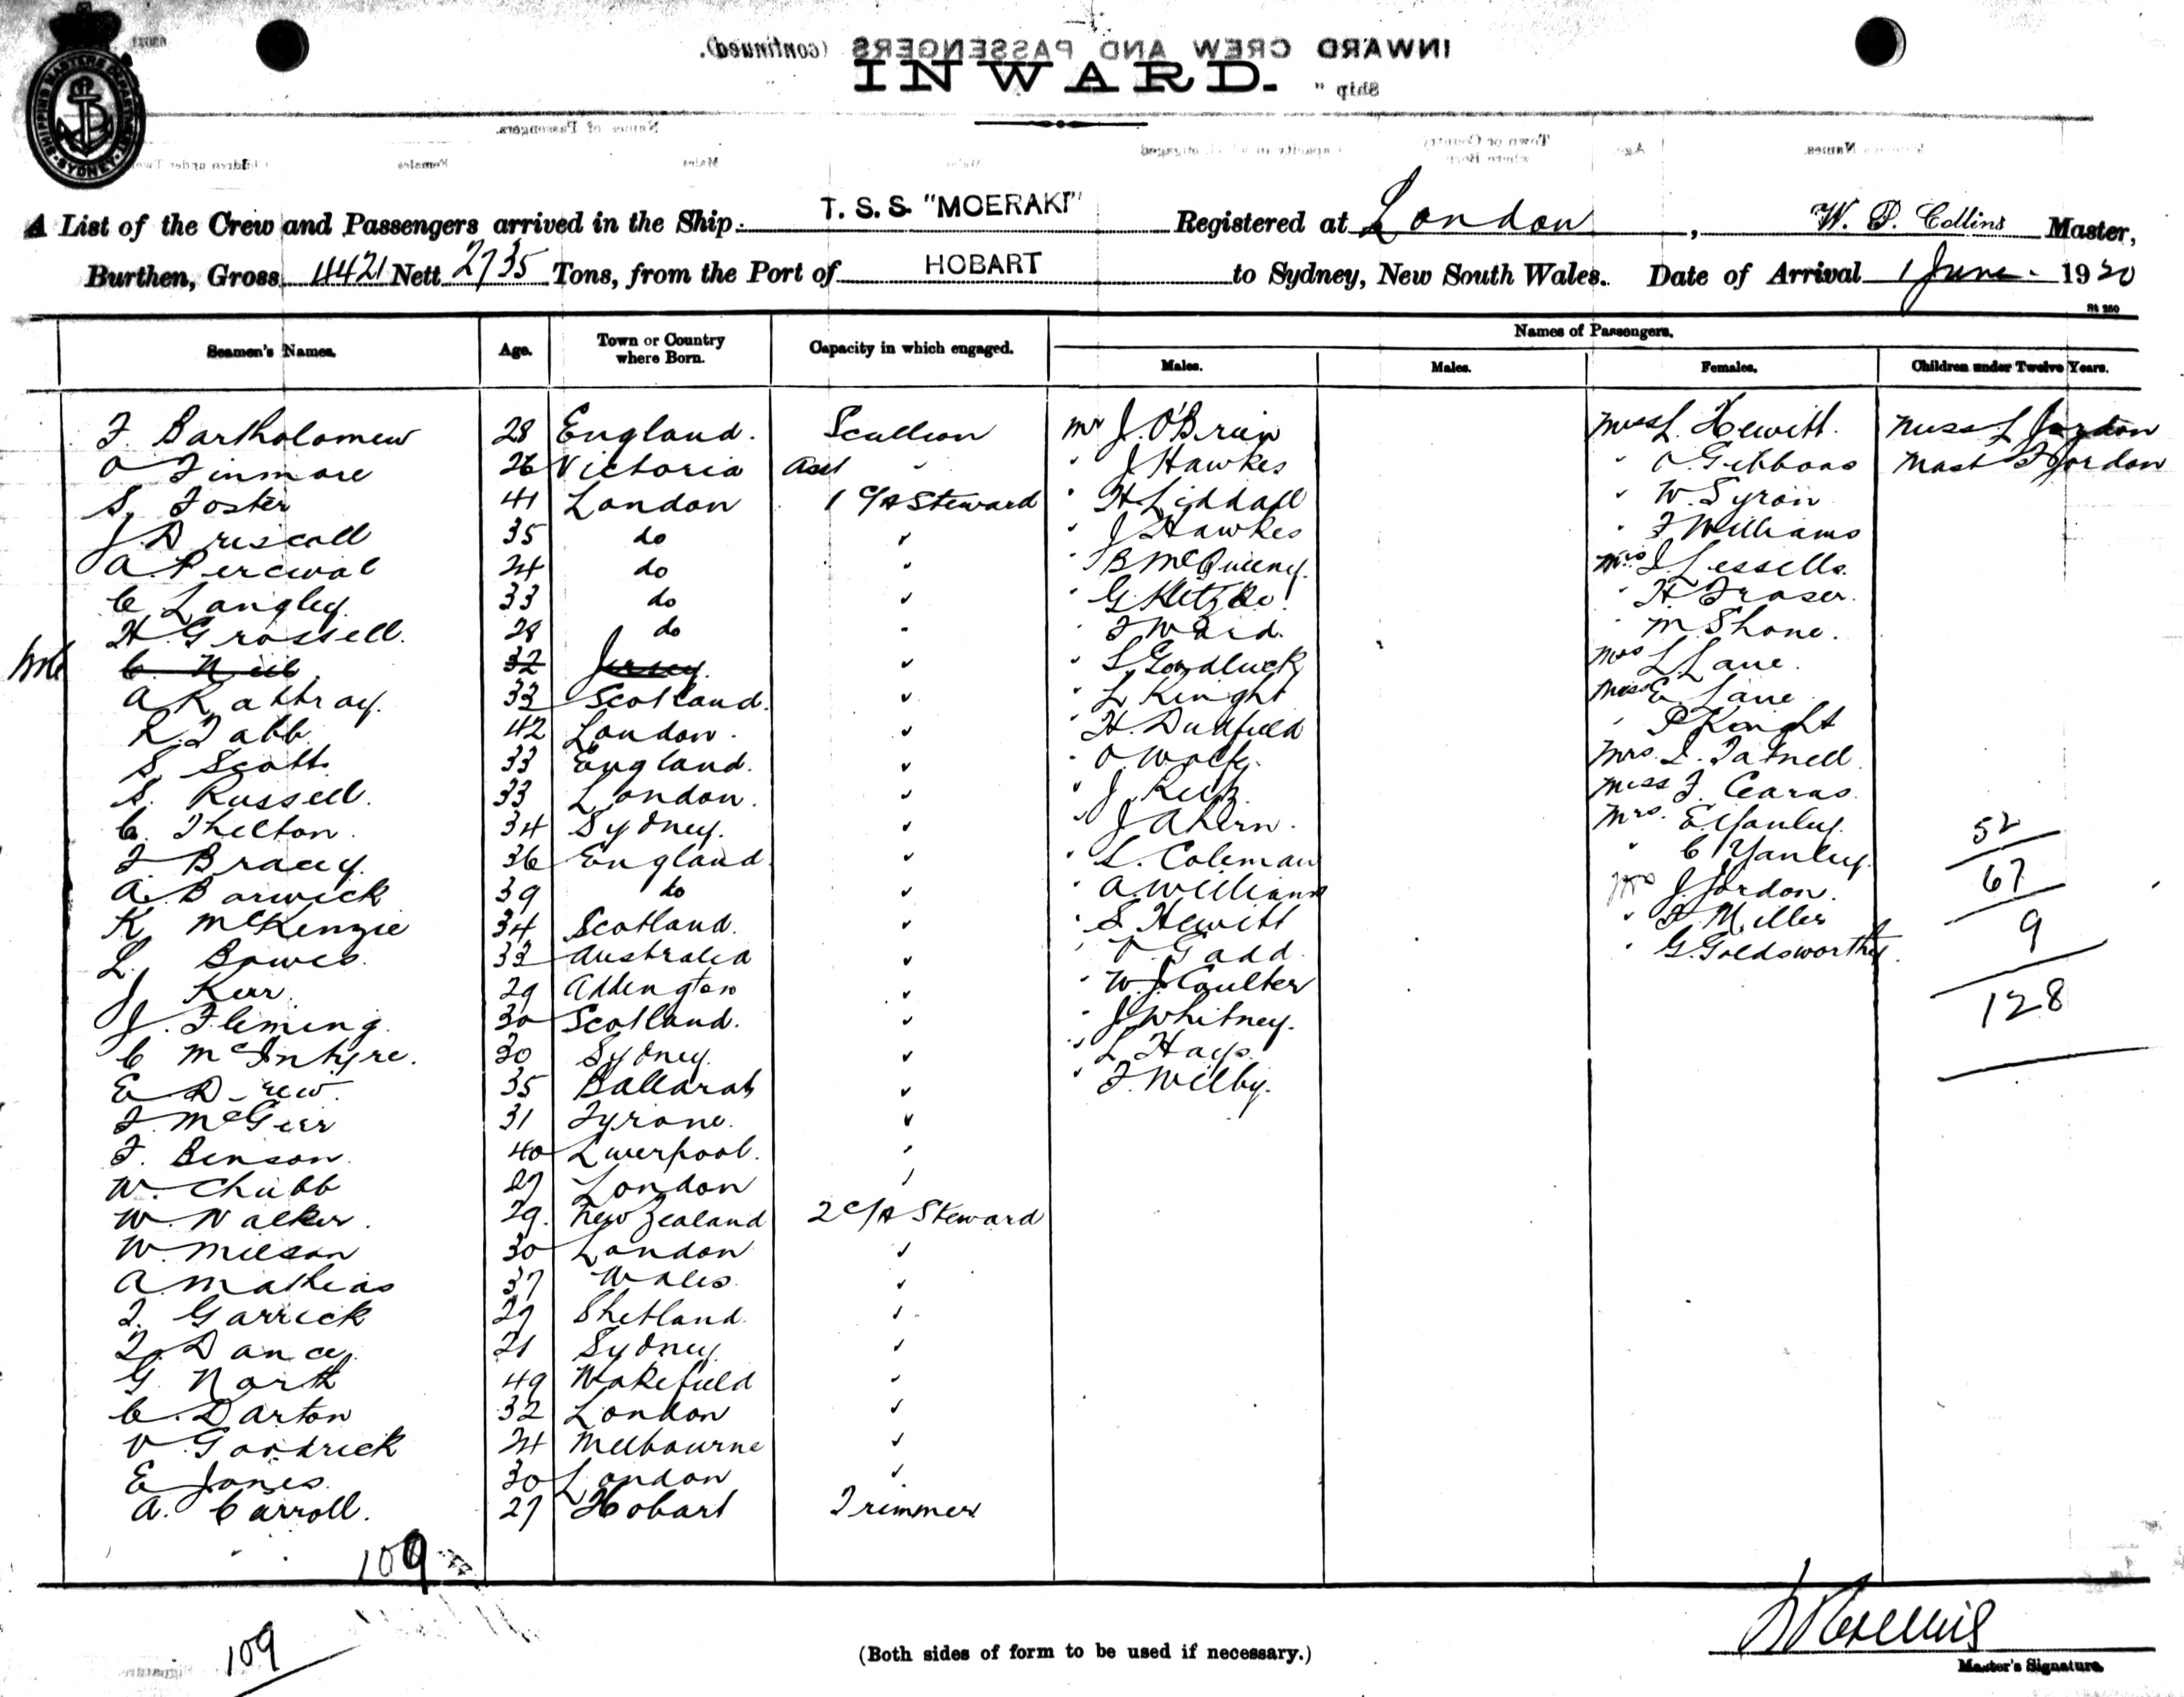 INWARD CREW AND PASSENGERS (continued).
INWARD.
Ship "
Names of Passengers.
SHIPPING MASTERS DEPARTMENT
SYDNEY
A List of the Crew and Passengers arrived in the Ship T. S. S. "MOERAKI" Registered at London, W. P. Collins Master,
Burthen, Gross 4421 Nett 2735 Tons, from the Port of HOBART to Sydney, New South Wales. Date of Arrival 1 June 1920
Names of Passengers.
Seamen's Names. Age. Town or Country where Born. Capacity in which engaged. Males. Males. Females. Children under Twelve Years.
F. Bartholomew 28 England. Scullion Mr J. O'Brien Miss L. Hewitt. Miss L Jordon
O Finmore 26 Victoria Asst " " J Hawkes " O. Gibbons Mast F Jordon
S. Foster 41 London 1 C/A Steward " H Liddall " W. Syron
J. Driscoll 35 do " " J Hawkes " F Williams
A. Percival 24 do " " B McQueeny. Mrs J. Lessells.
C Langley. 33 do " " G. " H. Fraser.
H. Grossell. 28 do " " F Ward. " M. Shone.
C. Neil 32 Jersey. " " S. Goodluck Mrs L Lane.
A Rattray. 33 Scotland. " " L Knight Miss E Lane
R. Tabb 42 London. " " H. Duffield " P Knight
S. Scott. 33 England. " " O. Wolfe. Mrs. L. Tatnell
S. Russell. 33 London. " " J. Miss F. Cearns.
C. Thelton. 34 Sydney. " " J Ahern. Mrs. E. Yanley.
F. Bracey. 36 England " " L. Coleman " C Yanley. 52
A. Barwick 39 do " " A. Williams Mrs J. Jordon. 67
K McKenzie 34 Scotland. " " S Hewitt " F. Miller 9
L. Bowes. 33 Australia " " V. Gadd. " G. Goldsworthy.
J Kerr. 29 Addington " " W. J. Coulter 128
J. Fleming. 30 Scotland. " " J. Whitney.
C McIntyre. 30 Sydney. " " L Hays.
E Drew. 35 Ballarat " " F. Wilby.
F. McGeir 31 Tyrone. "
F. Benson. 40 Liverpool. "
W. Chubb 27 London "
W. Walker. 29. New Zealand 2 C/A Steward
W. Milson 30 London "
A Mathias 37 Wales. "
T. Garrick 27 Shetland. "
T. Dancey. 21 Sydney. "
G. North 49 Wakefield "
C. Darton 32 London "
V. Goodrick 24 Melbourne "
E Jones. 30 London "
A. Carroll. 27 Hobart Trimmer
109
109
(Both sides of form to be used if necessary.)
Master's Signature